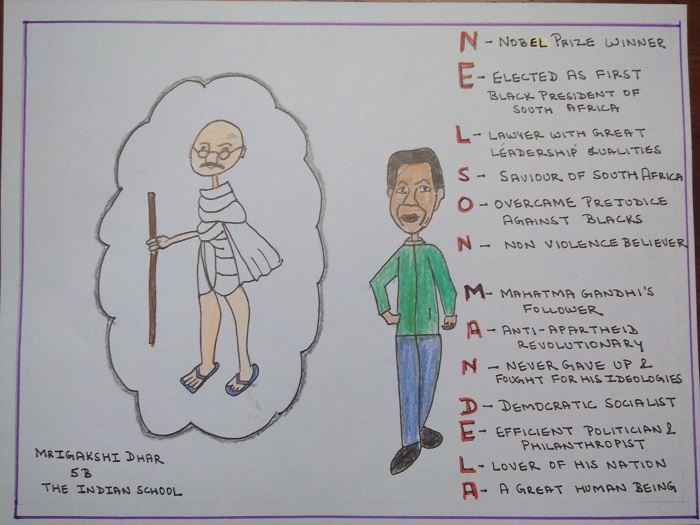 N - NOBEL PRIZE WINNER
E - ELECTED AS FIRST
BLACK PRESIDENT OF
SOUTH AFRICA
L - LAWYER WITH GREAT
LEADERSHIP QUALITIES
S - SAVIOUR OF SOUTH AFRICA
O - OVERCAME PREJUDICE
AGAINST BLACKS
N - NON VIOLENCE BELIEVER
M - MAHATMA GANDHI'S
FOLLOWER
A - ANTI-APARTHEID
REVOLUTIONARY
N - NEVER GAVE UP &
FOUGHT FOR HIS IDEOLOGIES
D - DEMOCRATIC SOCIALIST
E - EFFICIENT POLITICIAN &
PHILANTHROPIST
L - LOVER OF HIS NATION
A - A GREAT HUMAN BEING
MRIGAKSHI DHAR
5B
THE INDIAN SCHOOL